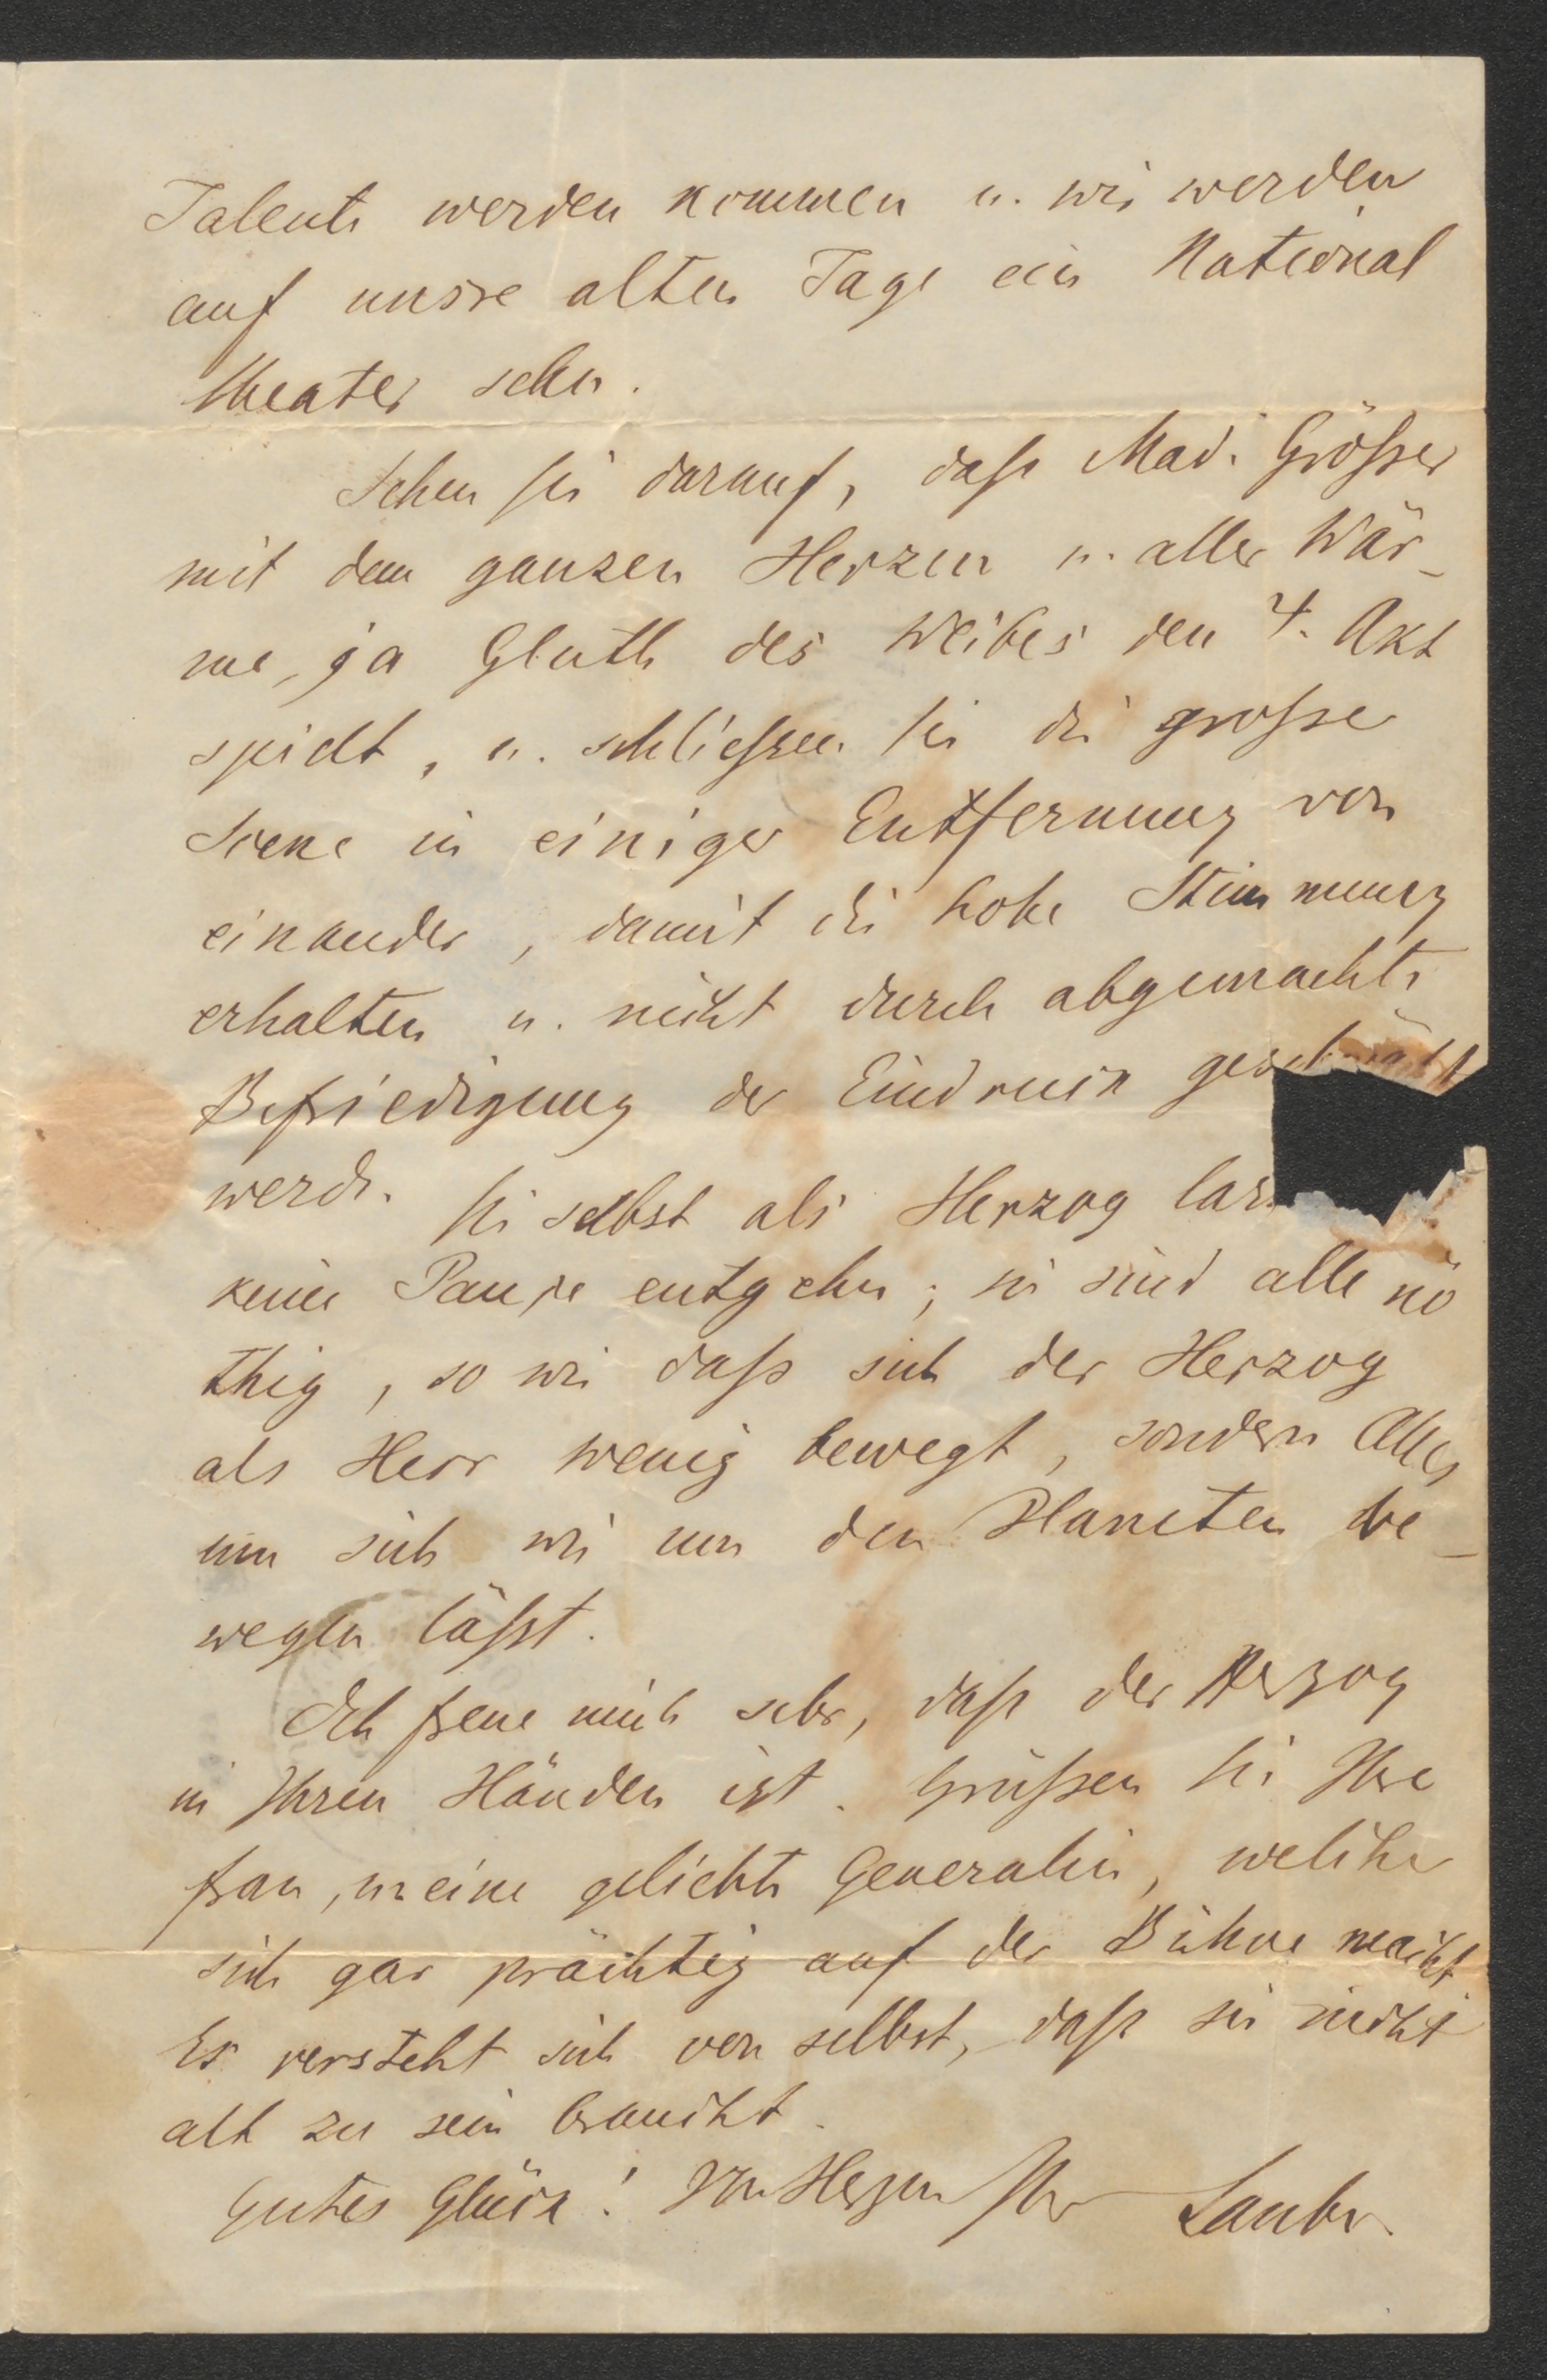 Talente werden kommen u. wir werden
auf unsre alten Tage ein National
theater sehn.
Sehen Sie darauf, daß Mad. Größer
mit dem ganzen Herzen u. aller Wär-
me, ja Gluth des Weibes den 4. Akt
spielt, u. schließen Sie die große
Scene in einiger Entfernung von
einander, damit die hohe Stimmung
erhalten u. nicht durch abgemachte
Befriedigung der Eindruck
werde. Sie selbst als Herzog
keine Pause entgehn; sie sind alle nö
thig, so wie daß sich der Herzog
als Herr wenig bewegt, sondern Alles
um sich wie um den Planeten be-
wegen läßt.
Ich freue mich sehr, daß der Herzog
in Ihren Händen ist. Grüßen Sie Ihre
Frau, meine geliebte Generalin, welche
sich gar prächtig auf der Bühne macht
Es versteht sich von selbst, daß sie nicht
alt zu sein braucht.
Gutes Glück! Von Herzen Ihr Laube.